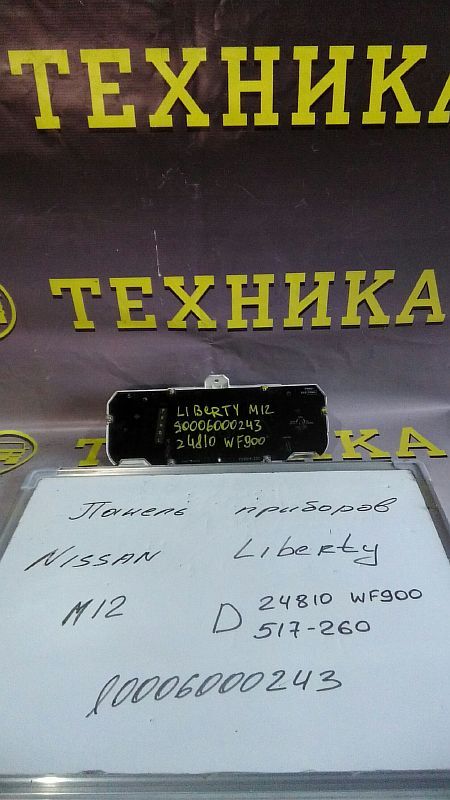 ТЕХНИКА
ТЕХНИКА
LIBERTY M12
90006000243
24810 WF900
ТЕХНИКА
Панель приборов
NISSAN Liberty
M12 D 24810 WF900
517-260
90006000243